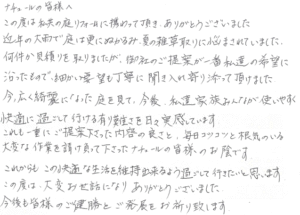 ナチュールの皆様へ
この度は我家の庭リフォームに携わって頂き、ありがとうございました
近年の大雨で庭は更にぬかるみ、夏の雑草取りに悩まされていました。
何件か見積りを取りましたが、御社のご提案が一番私達の希望に
沿ったもので、細かい要望も丁寧に聞き入れ寄り添って頂けました
今、広く綺麗になった庭を見て、今後、私達家族みんなが使いやすく
快適に過ごして行ける有り難さを日々実感しています
これも一重にご提案下さった内容の良さと、毎日コツコツと根気のいる
大変な作業を請け負って下さったナチュールの皆様のお陰です
これからもこの快適な生活を維持出来るよう過ごして行きたいと思います
この度は、大変お世話になりありがとうございました
今後も皆様のご健勝とご発展をお祈り致します